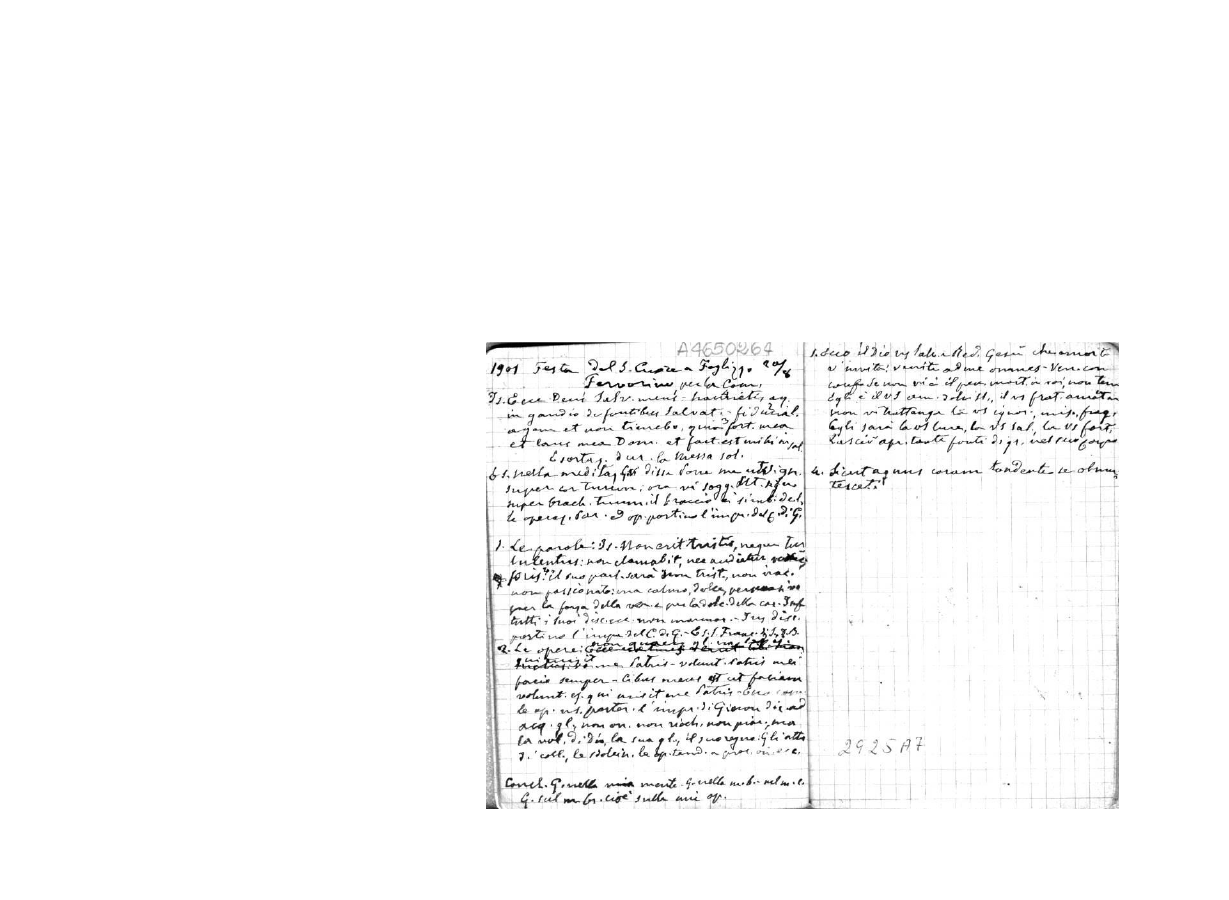 A4650264
1901 Festa del S. Cuore a Foglizzo 20/8
Fervorino per la Com.
Is. Ecce Deus Salv. meus -
in gaudio de fontibus Salvat. - fiducial.
agam et non timebo, quia fort. mea
et laus mea Dom. et fact. est mihi in sal.
Esortaz. dur. la Messa sol.
Es. nella meditaz. disse Pone me ut sign.
super cor tuum; ora vi sogg. ut sign.
super brach. tuum. il braccio è simb. del.
le operaz. Par. ed op. portino l'impr. del C. di G.
1. Le parole: Is. Non erit tristis, neque tur
bulentus: non clamabit, nec audietur
foris: il suo parl. sarà non trist, non irac.
non passionato: ma calmo, dolce,
per la forza della ver. e per la dolc. della car. Inf
tutti i suoi disc. non mormor. -
portino l'impr. del C. di G. - Es. S. Franc. di S. G. B.
2. Le opere: non quaero gl.
me Patris - volunt. Patris mei
facio semper - Cibus meus est ut faciam
volunt. ej. qui misit me Patris -
le op. ns. porter. l'impr. di G. non dir. ad
acq. gl, non on. non ricch, non piac, ma
la vol. di dio, la sua gl, il suo regno. Gli atti
Concl. G. nella mia mente. G. nella m. b. - nel m. c.
G. sul m. br. cioè sulle mie op.
1. Ecco il Dio vs Salv. e Red. Gesù che
v'invita: venite ad me omnes - Ven. con
conf. se non vi è il pecc. mort. in voi, non tem
Egli è il vs am. dolciss, il vs frat.
non vi trattenga la vs ignor, mis, frag.
Egli sarà la vs luce, la vs sal, la vs fort.
Lasciò ap. tante fonti di gr. nel suo corpo
4. Sicut agnus coram tondente se obmu
tescet.
2925A7